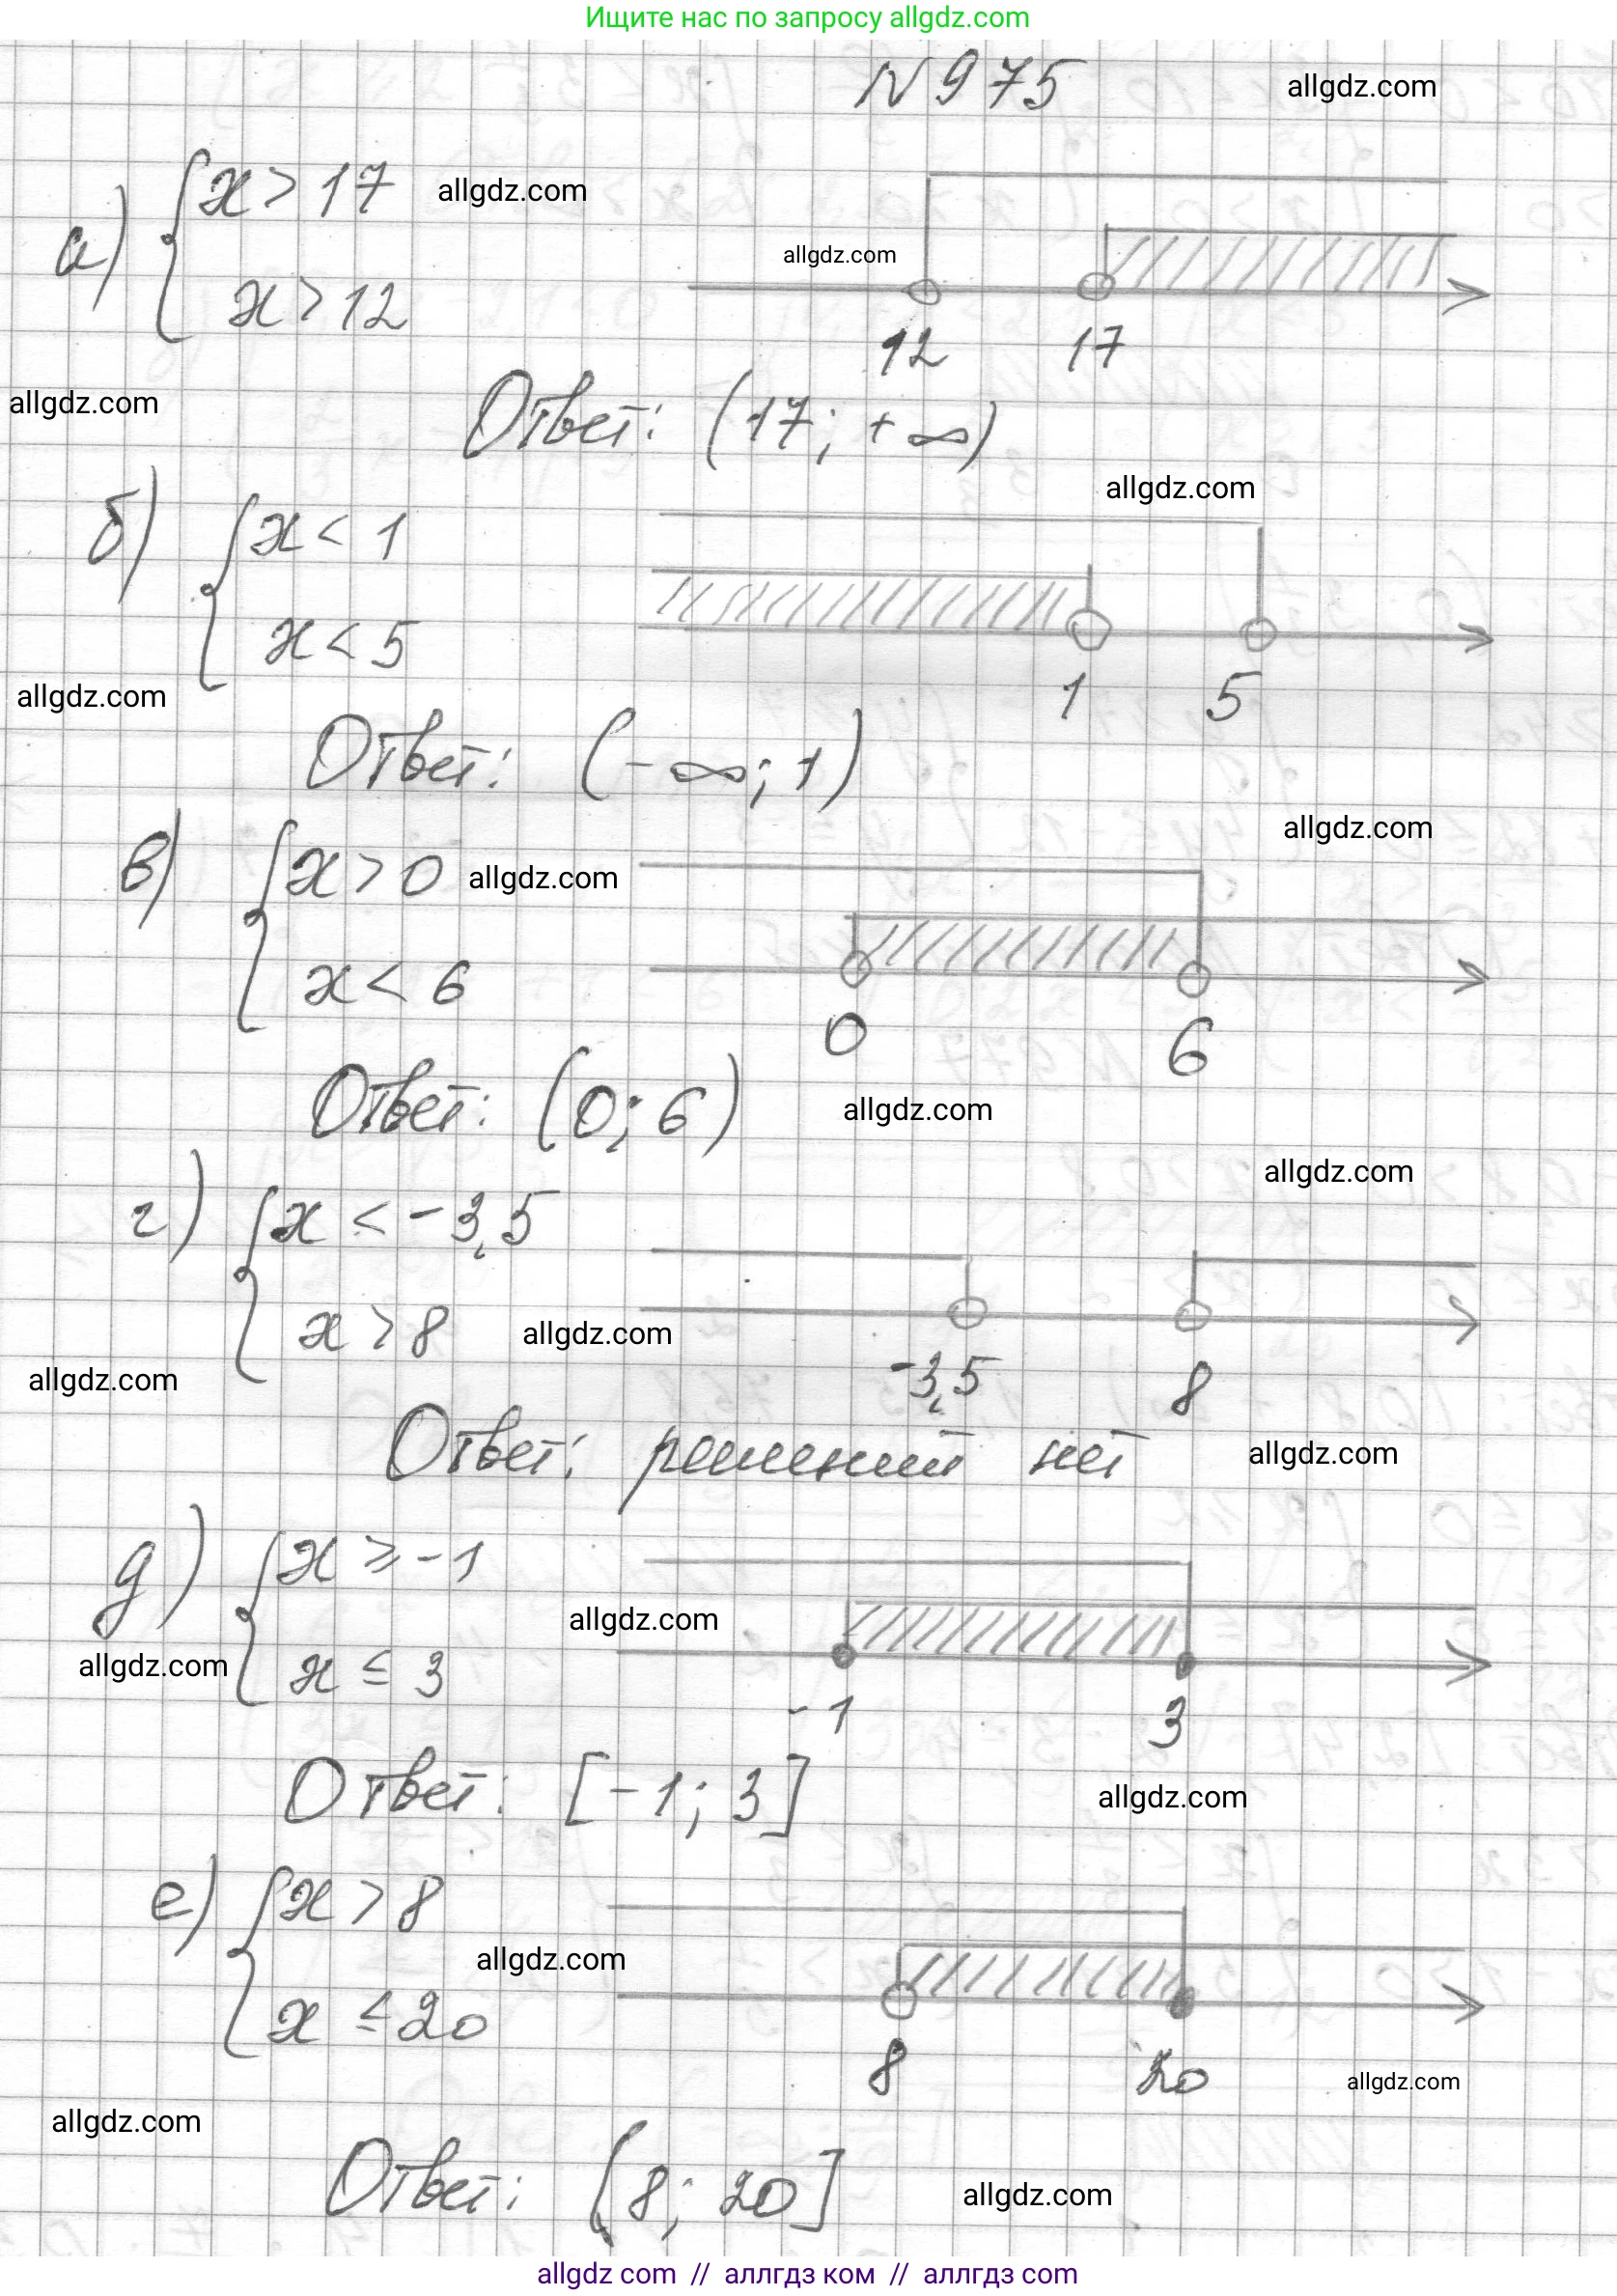 Ищите нас по запросу allgdz.com
N 975
allgdz.com
а) { x > 17
allgdz.com
x > 12
allgdz.com
12 17
allgdz.com
Ответ: (17; +∞)
allgdz.com
б) { x < 1
x < 5
1 5
allgdz.com
Ответ: (-∞; 1)
allgdz.com
в) { x > 0
allgdz.com
x < 6
0 6
Ответ: (0; 6)
allgdz.com
allgdz.com
г) { x < -3,5
x > 8
allgdz.com
-3,5 8
allgdz.com
Ответ: решений нет
allgdz.com
д) { x ≥ -1
allgdz.com
x ≤ 3
allgdz.com
-1 3
Ответ: [-1; 3]
allgdz.com
е) { x > 8
allgdz.com
x ≤ 20
8 20
allgdz.com
allgdz.com
Ответ: (8; 20]
allgdz.com
allgdz com // аллгдз ком // аллгдз com